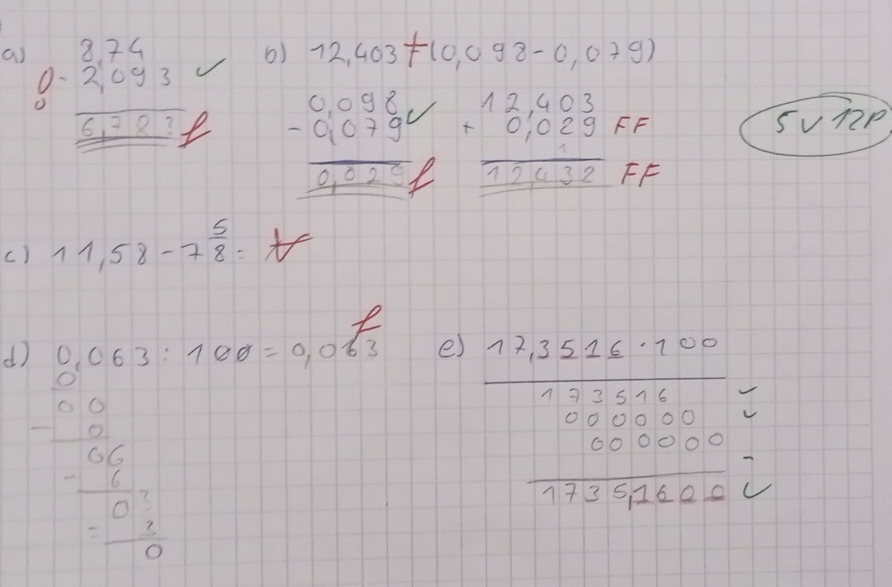 a) 8,74
- 2,093 ✓
6,783 f
b) 12,403 + (0,098 - 0,079)
0,098
- 0,079 ✓
0,029 f
12,403
+ 0,029 FF
1
12,432 FF
5 v 12P
c) 11,58 - 7 5/8 =
d) 0,063 : 100 = 0,063 f
0
00
- 0
06
- 6
03
= 3
0
e) 17,3516 · 100
173516 ✓
000000 ✓
000000 -
1735,1600 ✓